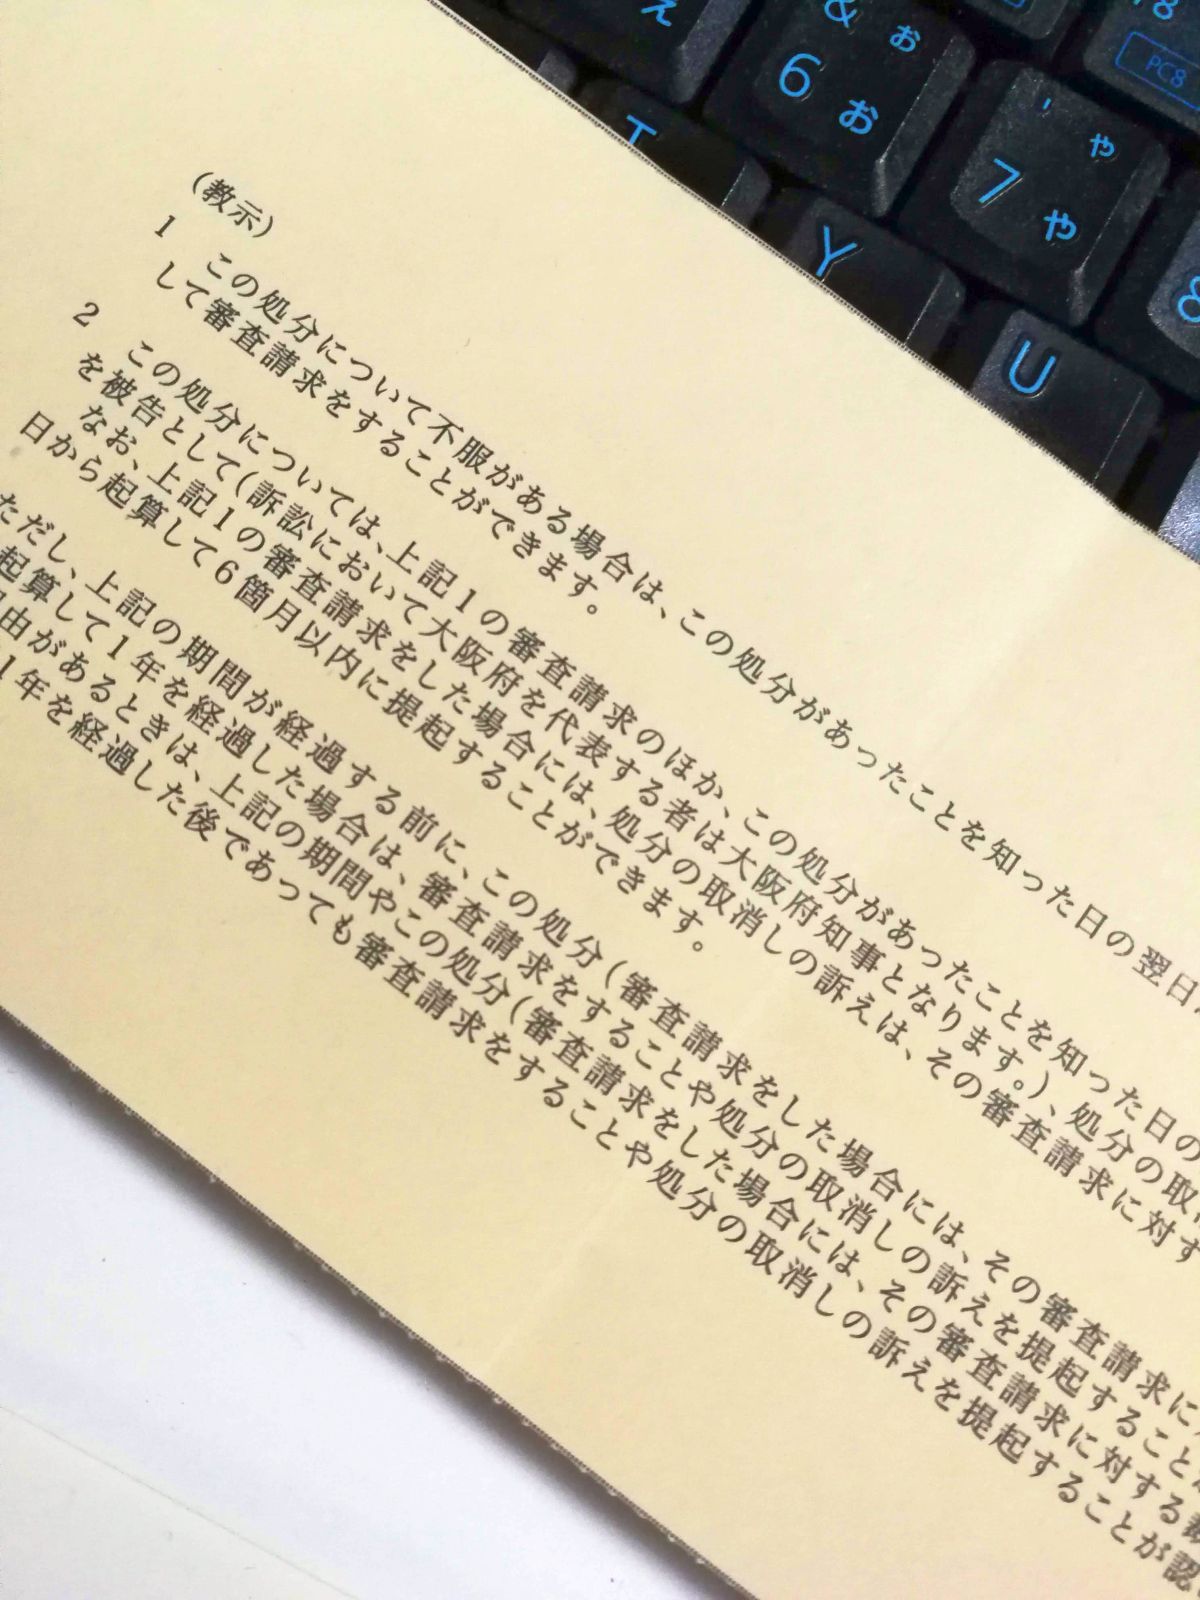 え
& ぉ
6 お
' ゃ
7 や
PC8
T
Y
U
8
(教示)
1 この処分について不服がある場合は、この処分があったことを知った日の翌日
して審査請求をすることができます。
2 この処分については、上記1の審査請求のほか、この処分があったことを知った日の
を被告として(訴訟において大阪府を代表する者は大阪府知事となります。)、処分の取
なお、上記1の審査請求をした場合には、処分の取消しの訴えは、その審査請求に対す
日から起算して6箇月以内に提起することができます。
ただし、上記の期間が経過する前に、この処分(審査請求をした場合には、その審査請求に
起算して1年を経過した場合は、審査請求をすることや処分の取消しの訴えを提起すること
由があるときは、上記の期間やこの処分(審査請求をした場合には、その審査請求に対する
1年を経過した後であっても審査請求をすることや処分の取消しの訴えを提起することが認